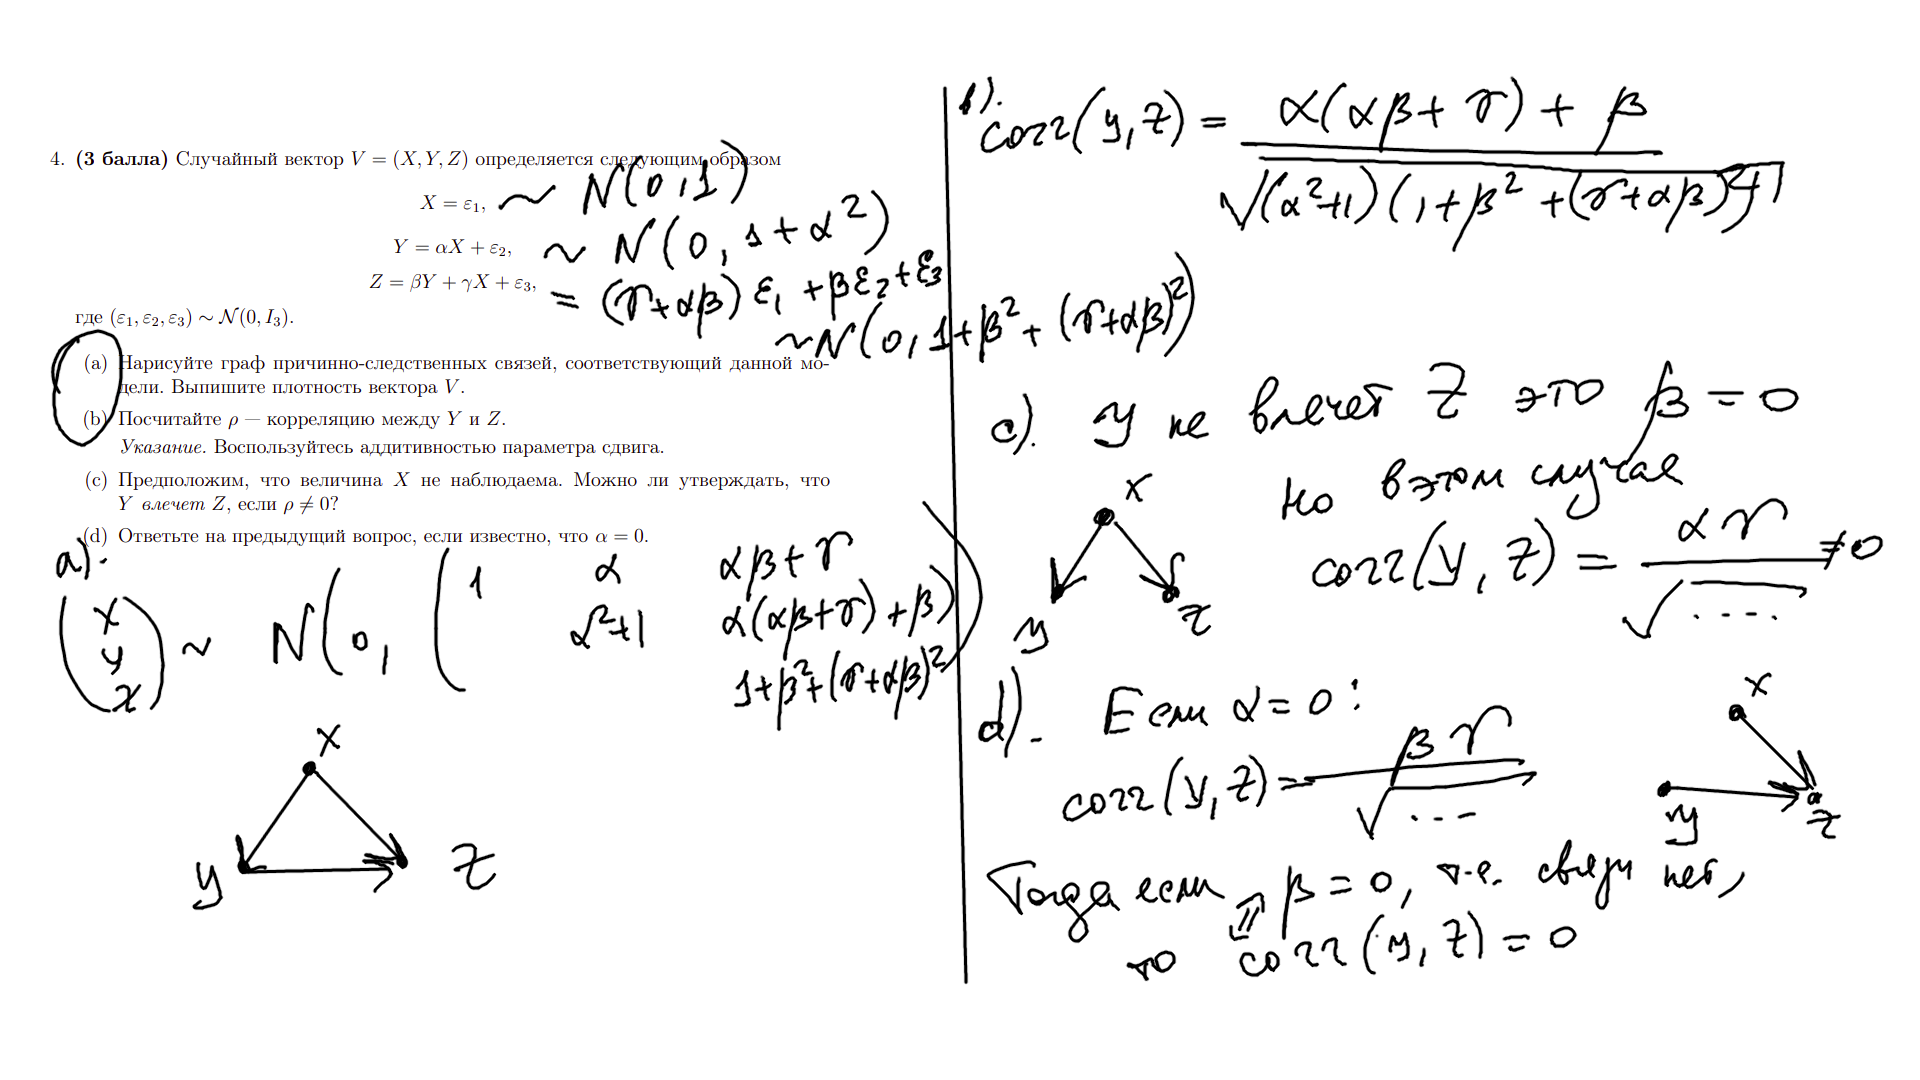 4. (3 балла) Случайный вектор V = (X, Y, Z) определяется следующим образом
X = ε₁, ~ N(0,1)
Y = αX + ε₂, ~ N(0, 1+α²)
Z = βY + γX + ε₃, = (γ+αβ)ε₁ + βε₂ + ε₃
~N(0, 1+β² + (γ+αβ)²)
где (ε₁, ε₂, ε₃) ~ N(0, I₃).
(a) Нарисуйте граф причинно-следственных связей, соответствующий данной мо-
дели. Выпишите плотность вектора V.
(b) Посчитайте ρ — корреляцию между Y и Z.
Указание. Воспользуйтесь аддитивностью параметра сдвига.
(c) Предположим, что величина X не наблюдаема. Можно ли утверждать, что
Y влечет Z, если ρ ≠ 0?
(d) Ответьте на предыдущий вопрос, если известно, что α = 0.
a).
(x y x) ~ N(0, (1 α αβ+γ
α²+1 α(αβ+γ)+β
1+β²+(γ+αβ)²))
x
y z
b).
corr(y,z) = α(αβ+γ) + β / √(α²+1)(1+β²+(γ+αβ)²)
c). y не влечет z это β = 0
но в этом случае
corr(y, z) = αγ / √.... ≠ 0
x
y z
d). Если α = 0 :
corr(y,z) = βγ / √...
x
y z
Тогда если β = 0, т.е. связи нет,
⇕
то corr(y, z) = 0